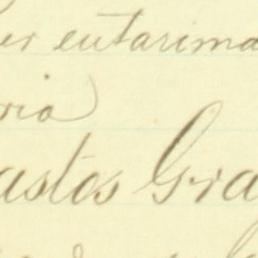 er entarima
ria
astos Gra